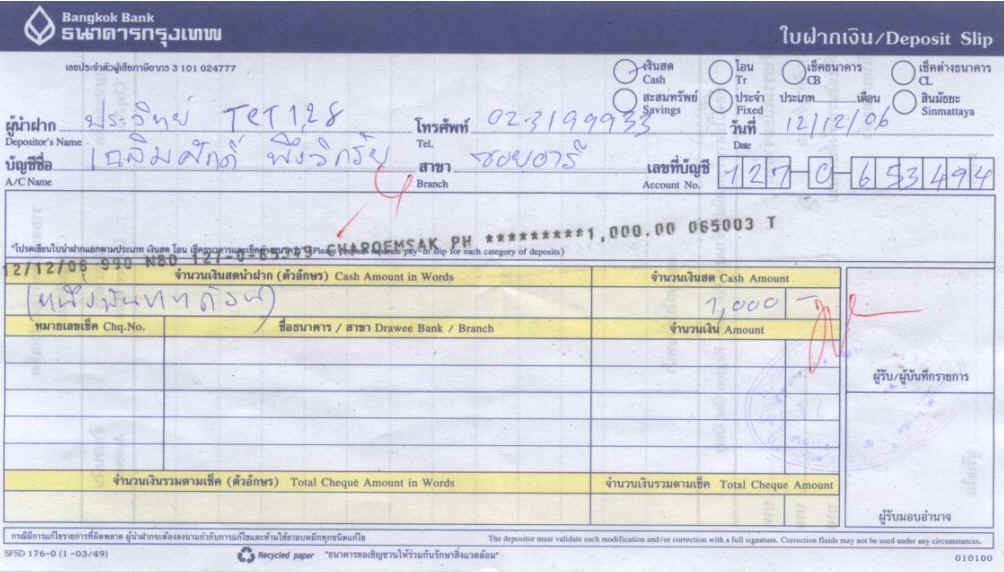 Bangkok Bank
ธนาคารกรุงเทพ
ใบฝากเงิน/Deposit Slip
เลขประจำตัวผู้เสียภาษีอากร 3 101 024777
เงินสด Cash
โอน Tr
เช็คธนาคาร CB
เช็คต่างธนาคาร CL
สะสมทรัพย์ Savings
ประจำ Fixed
ประเภท เดือน
สินมัธยะ Sinmattaya
ผู้นำฝาก ประวิทย์ TCT128 โทรศัพท์ 023199933 วันที่ 12/12/06
Depositor's Name Tel. Date
บัญชีชื่อ เฉลิมศักดิ์ สาขา ซอยอารี เลขที่บัญชี 127-0-653494
A/C Name Branch Account No.
CHAROEMSAK PH *********1,000.00 065003 T
12/12/06 990 N80 127-0-65349
จำนวนเงินสดนำฝาก (ตัวอักษร) Cash Amount in Words จำนวนเงินสด Cash Amount
(หนึ่งพันบาทถ้วน) 1,000 -
หมายเลขเช็ค Chq.No. ชื่อธนาคาร / สาขา Drawee Bank / Branch จำนวนเงิน Amount
ผู้รับ/ผู้บันทึกรายการ
จำนวนเงินรวมตามเช็ค (ตัวอักษร) Total Cheque Amount in Words จำนวนเงินรวมตามเช็ค Total Cheque Amount
ผู้รับมอบอำนาจ
กรณีมีการแก้ไขรายการที่ผิดพลาด ผู้นำฝากจะต้องลงนามกำกับการแก้ไขและห้ามใช้ยาลบหมึกทุกชนิดแก้ไข The depositor must validate each modification and/or correction with a full signature. Correction fluids may not be used under any circumstances.
SFSD 176-0 (1 -03/49) Recycled paper "ธนาคารขอเชิญชวนให้ร่วมกันรักษาสิ่งแวดล้อม" 010100